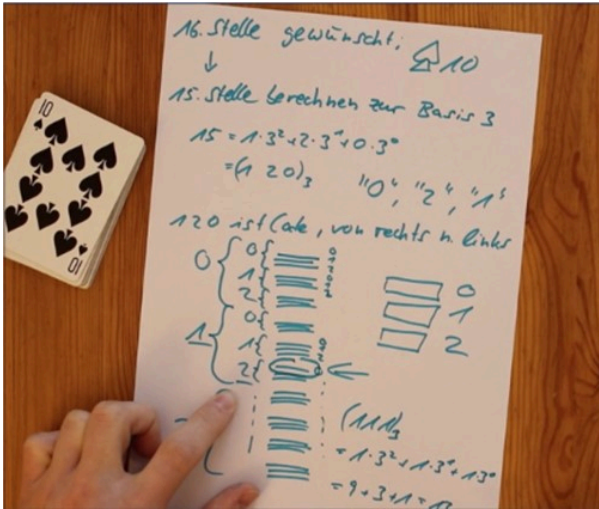 16. Stelle gewünscht: ♤ 10
↓
15. Stelle berechnen zur Basis 3
15 = 1·3²+2·3¹+0·3⁰
=(1 2 0)₃ "0", "2", "1"
120 ist Code, von rechts n. links
0 { 0{
1{
2{
1 { 0{
1{
2{
0
1
2
(111)₃
= 1·3²+1·3¹+1·3⁰
= 9+3+1 = 13
10
10